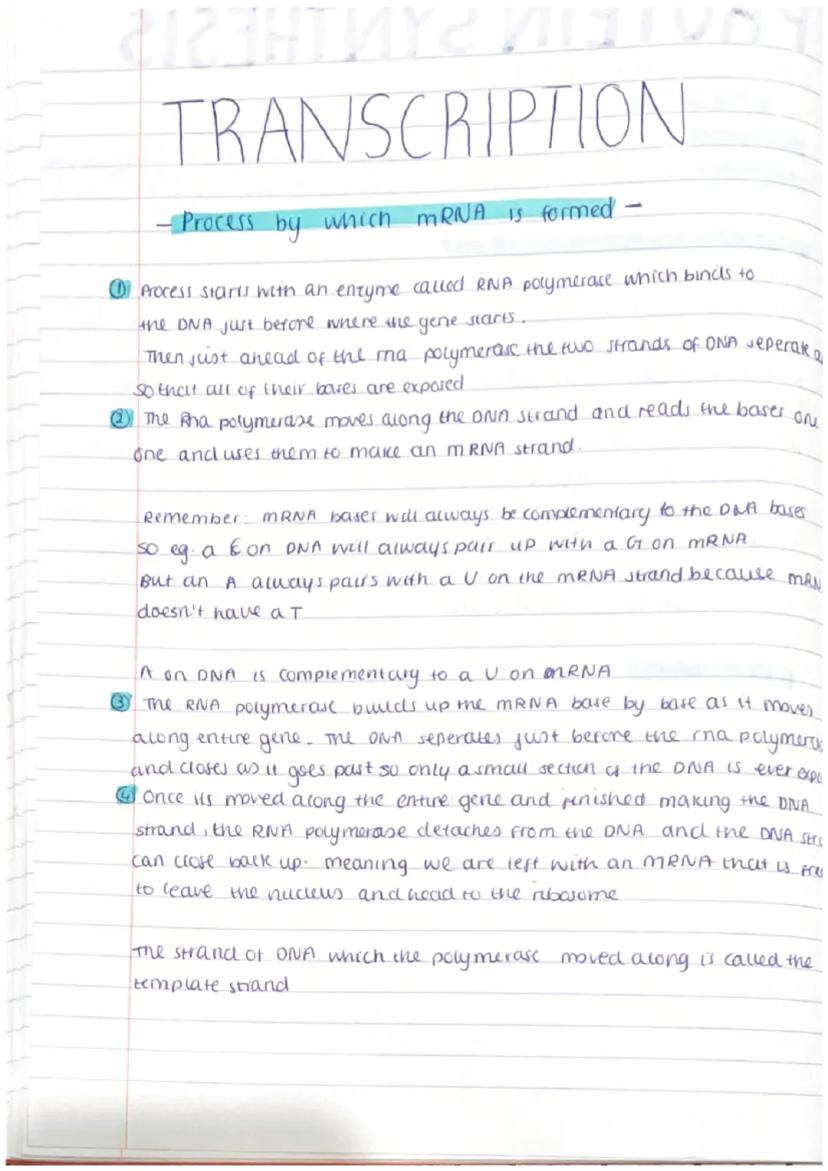 PROTEIN SYNTHESIS
TRANSCRIPTION
- Process by which mRNA is formed -
① Process starts with an enzyme called RNA polymerase which binds to
the DNA just before where the gene starts.
Then just ahead of the rna polymerase the two strands of DNA seperate
so that all of their bases are exposed
② The Rna polymerase moves along the DNA strand and reads the bases one
one and uses them to make an mRNA strand.
Remember: mRNA bases will always be complementary to the DNA bases
so eg. a C on DNA will always pair up with a G on mRNA.
But an A always pairs with a U on the mRNA strand because mRN
doesn't have a T
A on DNA is complementary to a U on mRNA
③ The RNA polymerase builds up the mRNA base by base as it moves
along entire gene. The DNA seperates just before the rna polymera
and closes as it goes past so only a small section of the DNA is ever expo
④ Once its moved along the entire gene and finished making the DNA
strand, the RNA polymerase detaches from the DNA and the DNA str
can close back up. meaning we are left with an mRNA that is free
to leave the nucleus and head to the ribosome
The strand of DNA which the polymerase moved along is called the
template strand